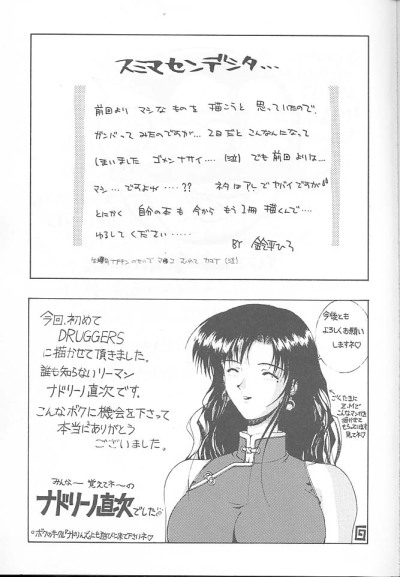 スミマセンデシタ...
前回より マシな ものを 描こうと 思っていたので、
ガンバって みたのですが... 2日だと こんなんになって
しまいました ゴメンナサイ....(泣) でも前回よりは...
マシ...ですよね....?? ネタはアレでヤバイですが
とにかく 自分の本も 今から もう1冊 描くんで....
ゆるしてください.....
BY 鈴平ひろ
今回、初めて
DRUGGERS
に描かせて頂きました。
誰も知らないリーマン
ナドリーノ直次です。
こんなボクに機会を下さって
本当にありがとう
ございました。
みんな〜 覚えてネ〜の
ナドリーノ直次でした。
今後とも
よろしくお願い
しますネ♡
ごくたまに
Z.Mで
こんなマンガを
描かせて
もらっているので
見てネ♡